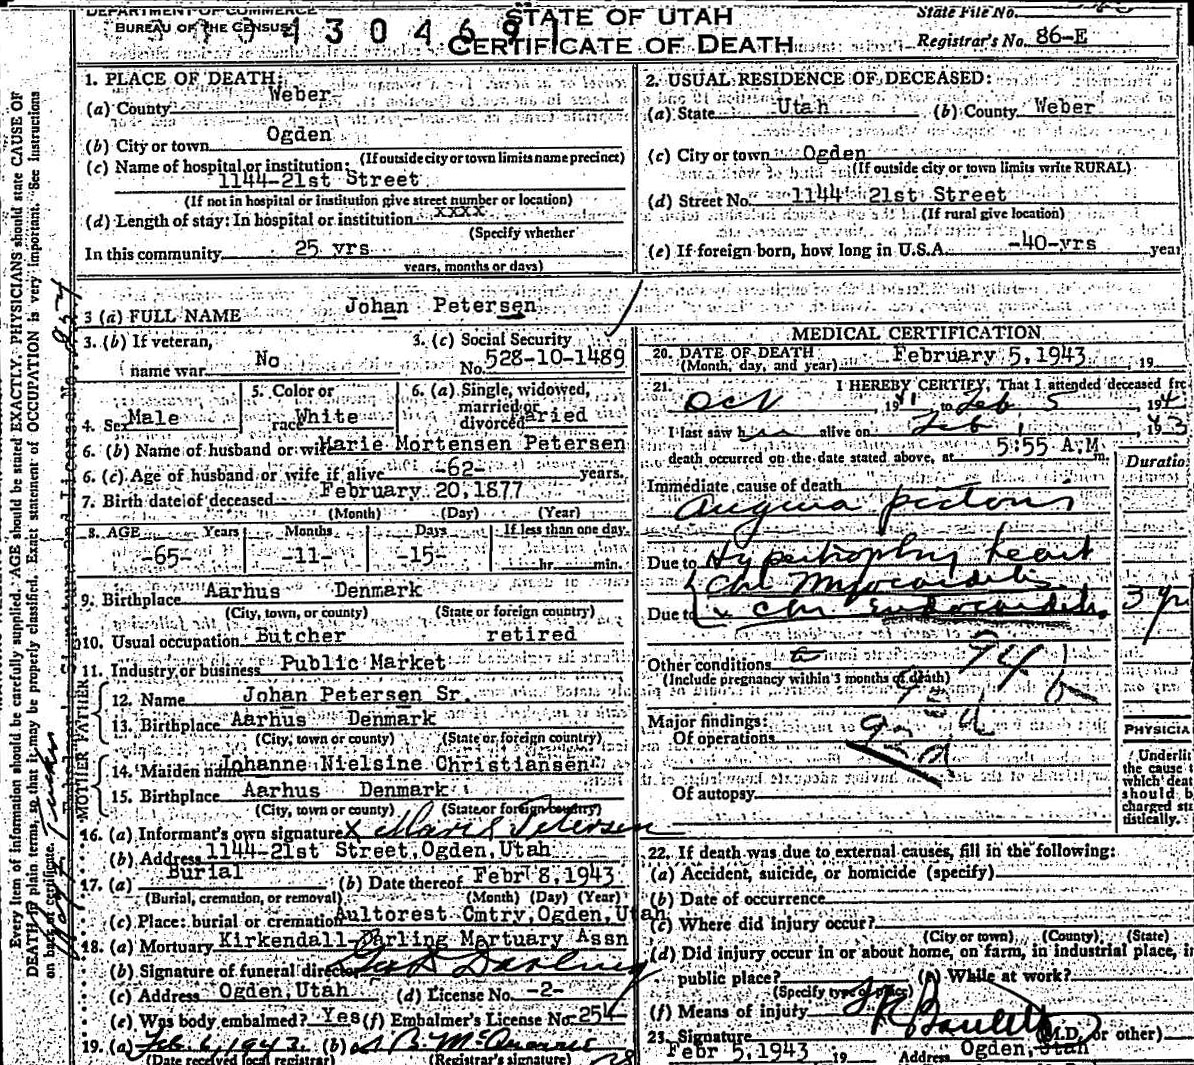 DEPARTMENT OF COMMERCE
BUREAU OF THE CENSUS
STATE OF UTAH
CERTIFICATE OF DEATH
State File No.
Registrar's No. 86-E
1. PLACE OF DEATH:
(a) County Weber
(b) City or town Ogden
(If outside city or town limits name precinct)
(c) Name of hospital or institution:
1144-21st Street
(If not in hospital or institution give street number or location)
(d) Length of stay: In hospital or institution xxxx
(Specify whether
In this community 25 yrs
years, months or days)
2. USUAL RESIDENCE OF DECEASED:
(a) State Utah (b) County Weber
(c) City or town Ogden
(If outside city or town limits write RURAL)
(d) Street No. 1144 21st Street
(If rural give location)
(e) If foreign born, how long in U.S.A. -40-yrs year
3 (a) FULL NAME Johan Petersen
3. (b) If veteran, name war No
3. (c) Social Security No. 528-10-1489
4. Sex Male
5. Color or race White
6. (a) Single, widowed, married or divorced Maried
6. (b) Name of husband or wife Marie Mortensen Petersen
6. (c) Age of husband or wife if alive -62- years.
7. Birth date of deceased February 20, 1877
(Month) (Day) (Year)
8. AGE Years Months Days If less than one day
-65- -11- -15- hr. min.
9. Birthplace Aarhus Denmark
(City, town, or county) (State or foreign country)
10. Usual occupation Butcher retired
11. Industry or business Public Market
FATHER
12. Name Johan Petersen Sr.
13. Birthplace Aarhus Denmark
(City, town or county) (State or foreign country)
MOTHER
14. Maiden name Johanne Nielsine Christiansen
15. Birthplace Aarhus Denmark
(City, town or county) (State or foreign country)
16. (a) Informant's own signature x Marie Petersen
(b) Address 1144-21st Street, Ogden, Utah
17. (a) Burial (b) Date thereof Febr 8, 1943
(Burial, cremation, or removal) (Month) (Day) (Year)
(c) Place: burial or cremation Aultorest Cmtry, Ogden, Utah
18. (a) Mortuary Kirkendall-Darling Mortuary Assn
(b) Signature of funeral director Darling
(c) Address Ogden, Utah (d) License No. -2-
(e) Was body embalmed? Yes (f) Embalmer's License No. 254
19. (a) Feb. 6, 1943. (b)
(Date received local registrar) (Registrar's signature)
MEDICAL CERTIFICATION
20. DATE OF DEATH February 5, 1943, 19
(Month, day, and year)
21. I HEREBY CERTIFY, That I attended deceased fro
Oct 1941 to Feb 5, 194
I last saw him alive on Feb 1, 1943
death occurred on the date stated above, at 5:55 A.M. m.
Duratio
Immediate cause of death
Angina pectoris
Due to Hypertrophy heart
Chr Myocarditis
Due to x Chr Endocarditis 3 yr
Other conditions
(Include pregnancy within 3 months of death)
94 b
Major findings:
Of operations
Of autopsy
PHYSICIA
Underlin
the cause t
which deat
should b
charged sta
tistically.
22. If death was due to external causes, fill in the following:
(a) Accident, suicide, or homicide (specify)
(b) Date of occurrence
(c) Where did injury occur?
(City or town) (County) (State)
(d) Did injury occur in or about home, on farm, in industrial place, in
public place? (e) While at work?
(Specify type of place)
(f) Means of injury
23. Signature (M.D. or other)
Febr 5, 1943 19 Address Ogden, Utah
Every item of information should be carefully supplied. AGE should be stated EXACTLY. PHYSICIANS should state CAUSE OF
DEATH in plain terms, so that it may be properly classified. Exact statement of OCCUPATION is very important. See instructions
on back of certificate.